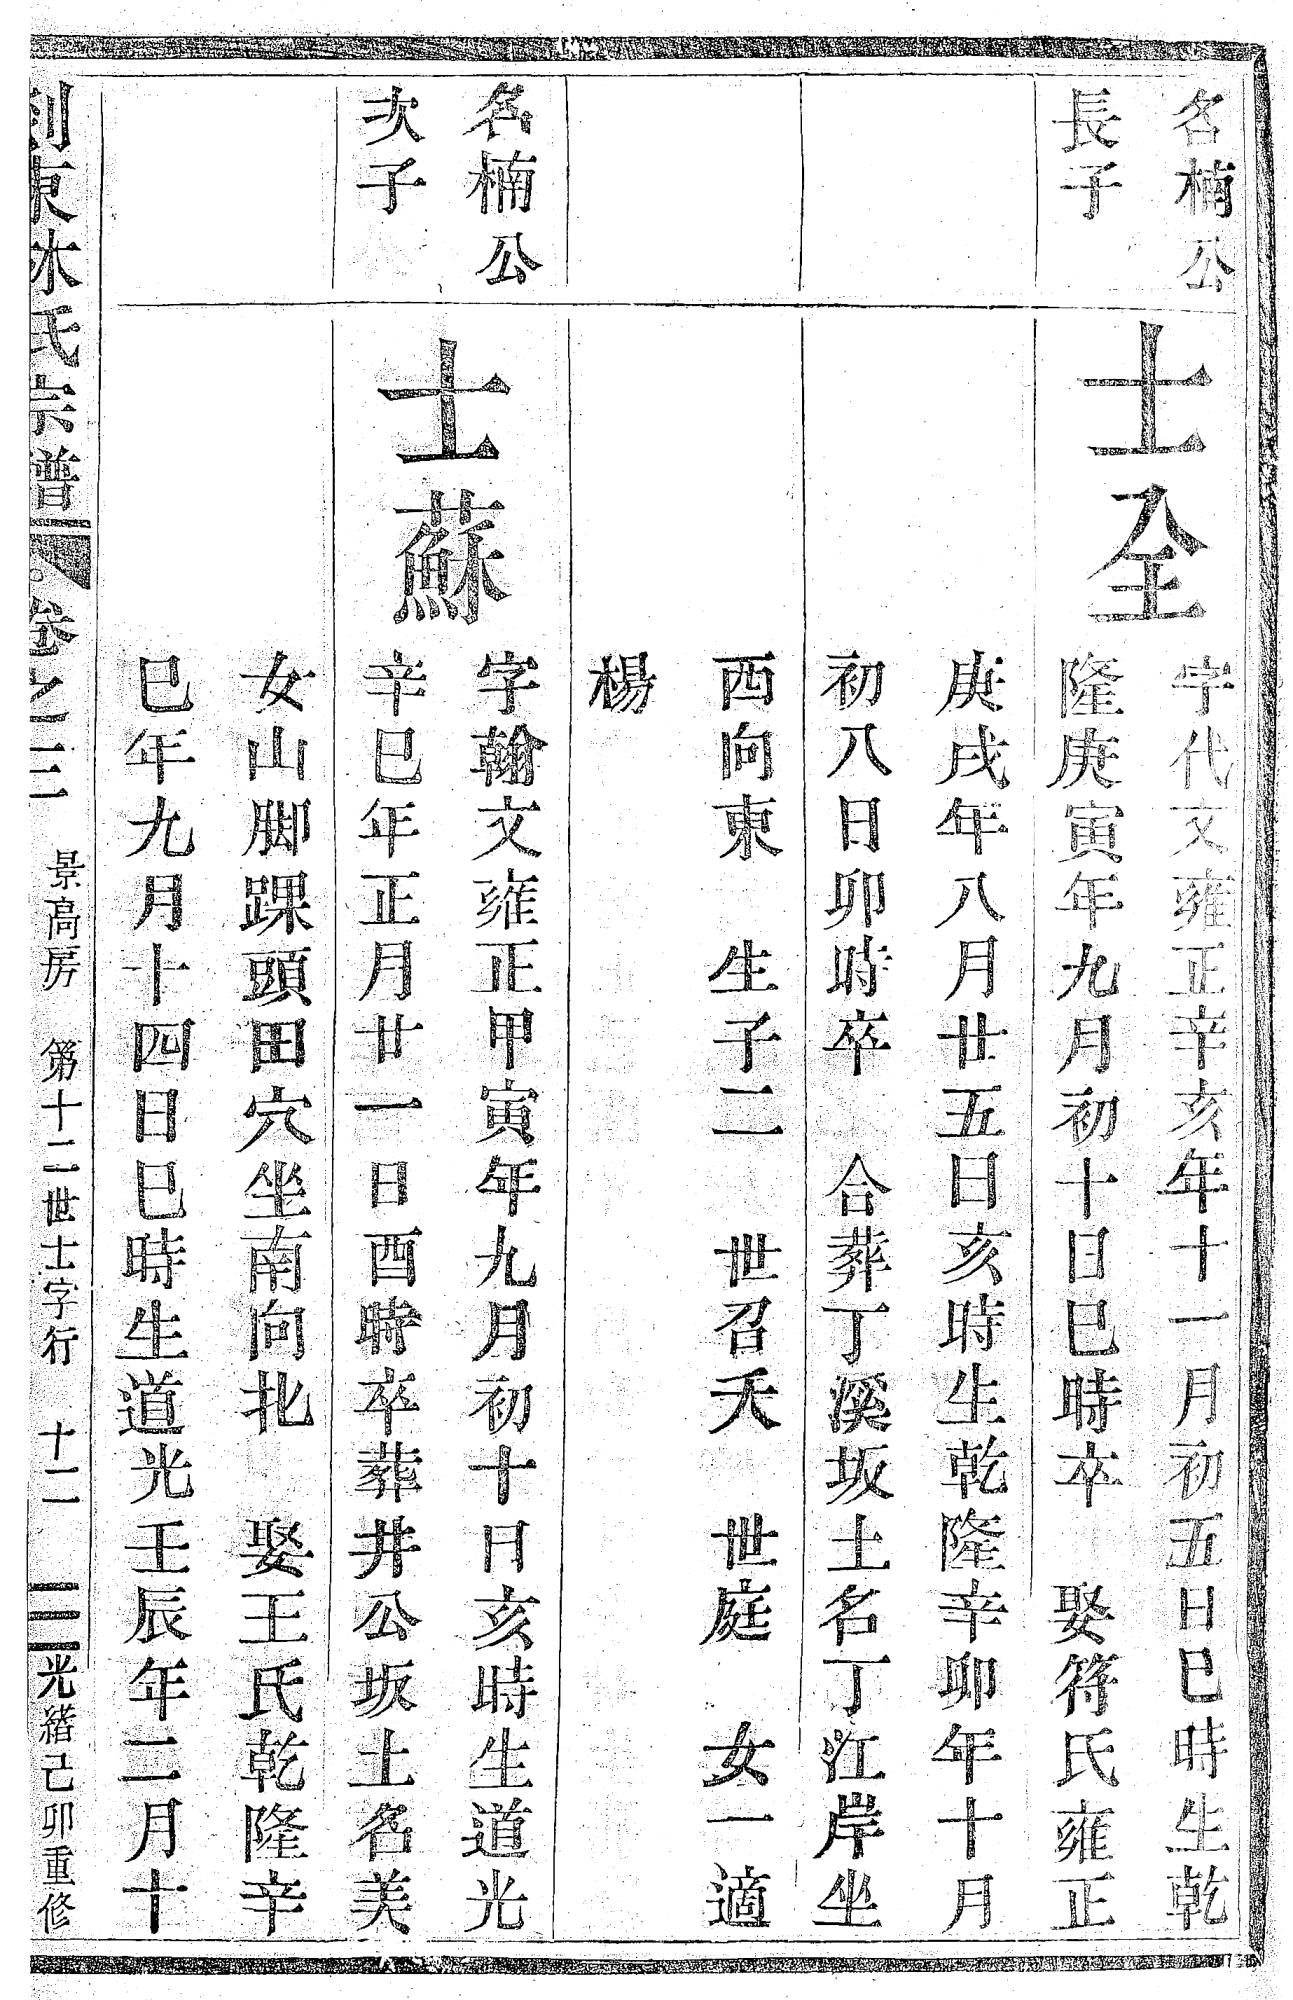 名楠公
長子
士全
字代文雍正辛亥年十一月初五日巳時生乾
隆庚寅年九月初十日巳時卒 娶符氏雍正
庚戌年八月廿五日亥時生乾隆辛卯年十月
初八日卯時卒 合葬丁溪坂土名丁江岸坐
西向東 生子二 世召夭 世庭 女一適
楊
名楠公
次子
士蘇
字翰文雍正甲寅年九月初十日亥時生道光
辛巳年正月廿一日酉時卒葬井公坂土名美
女山脚踝頭田穴坐南向北 娶王氏乾隆辛
巳年九月十四日巳時生道光壬辰年二月十
東氏宗譜 卷之三 景高房 第十二世士字行 十二 光緒己卯重修